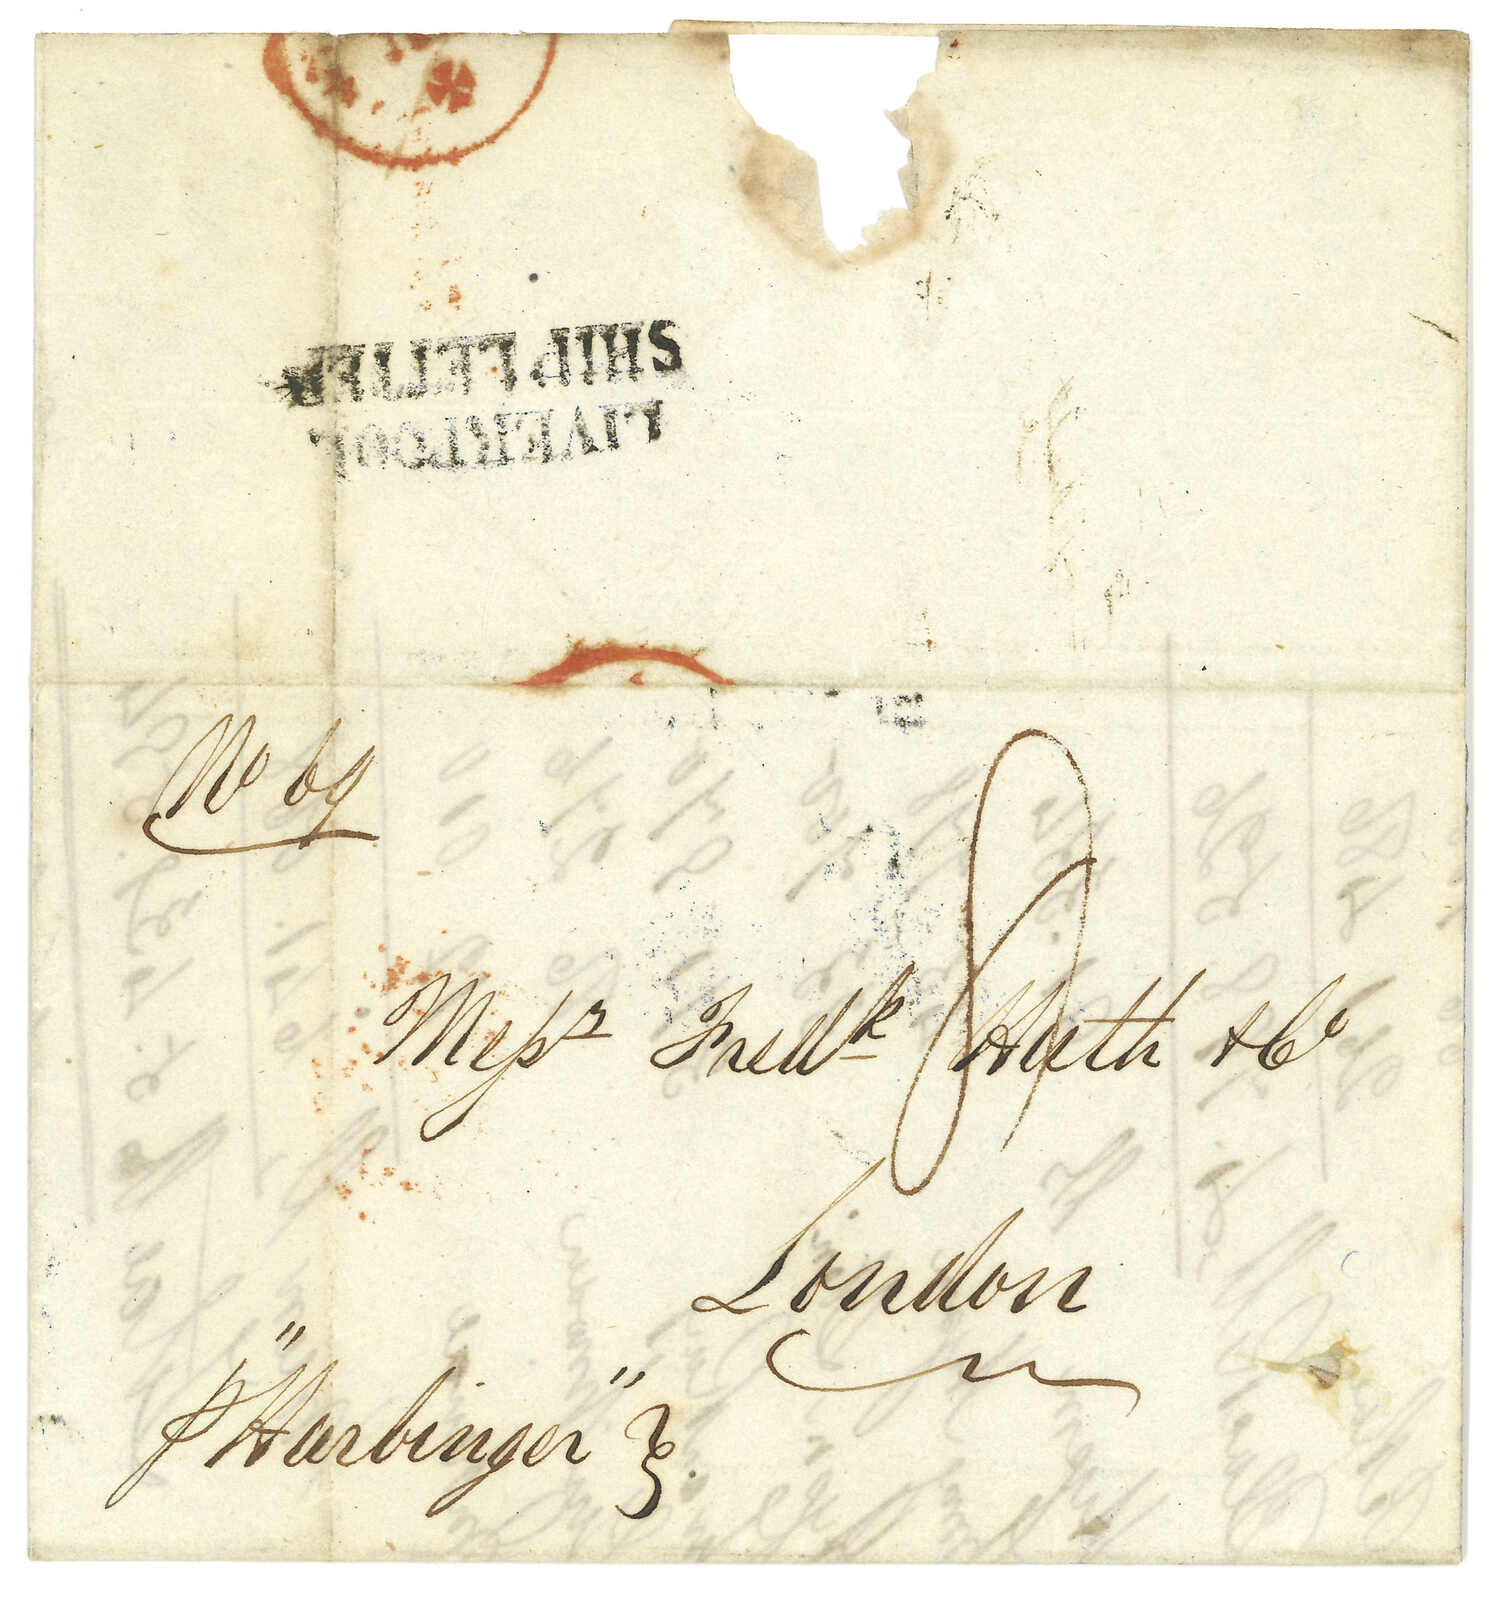 LIVERPOOL
SHIP LETTER
No 69
8
Messrs Fredk Huth & Co
London
p "Harbinger"